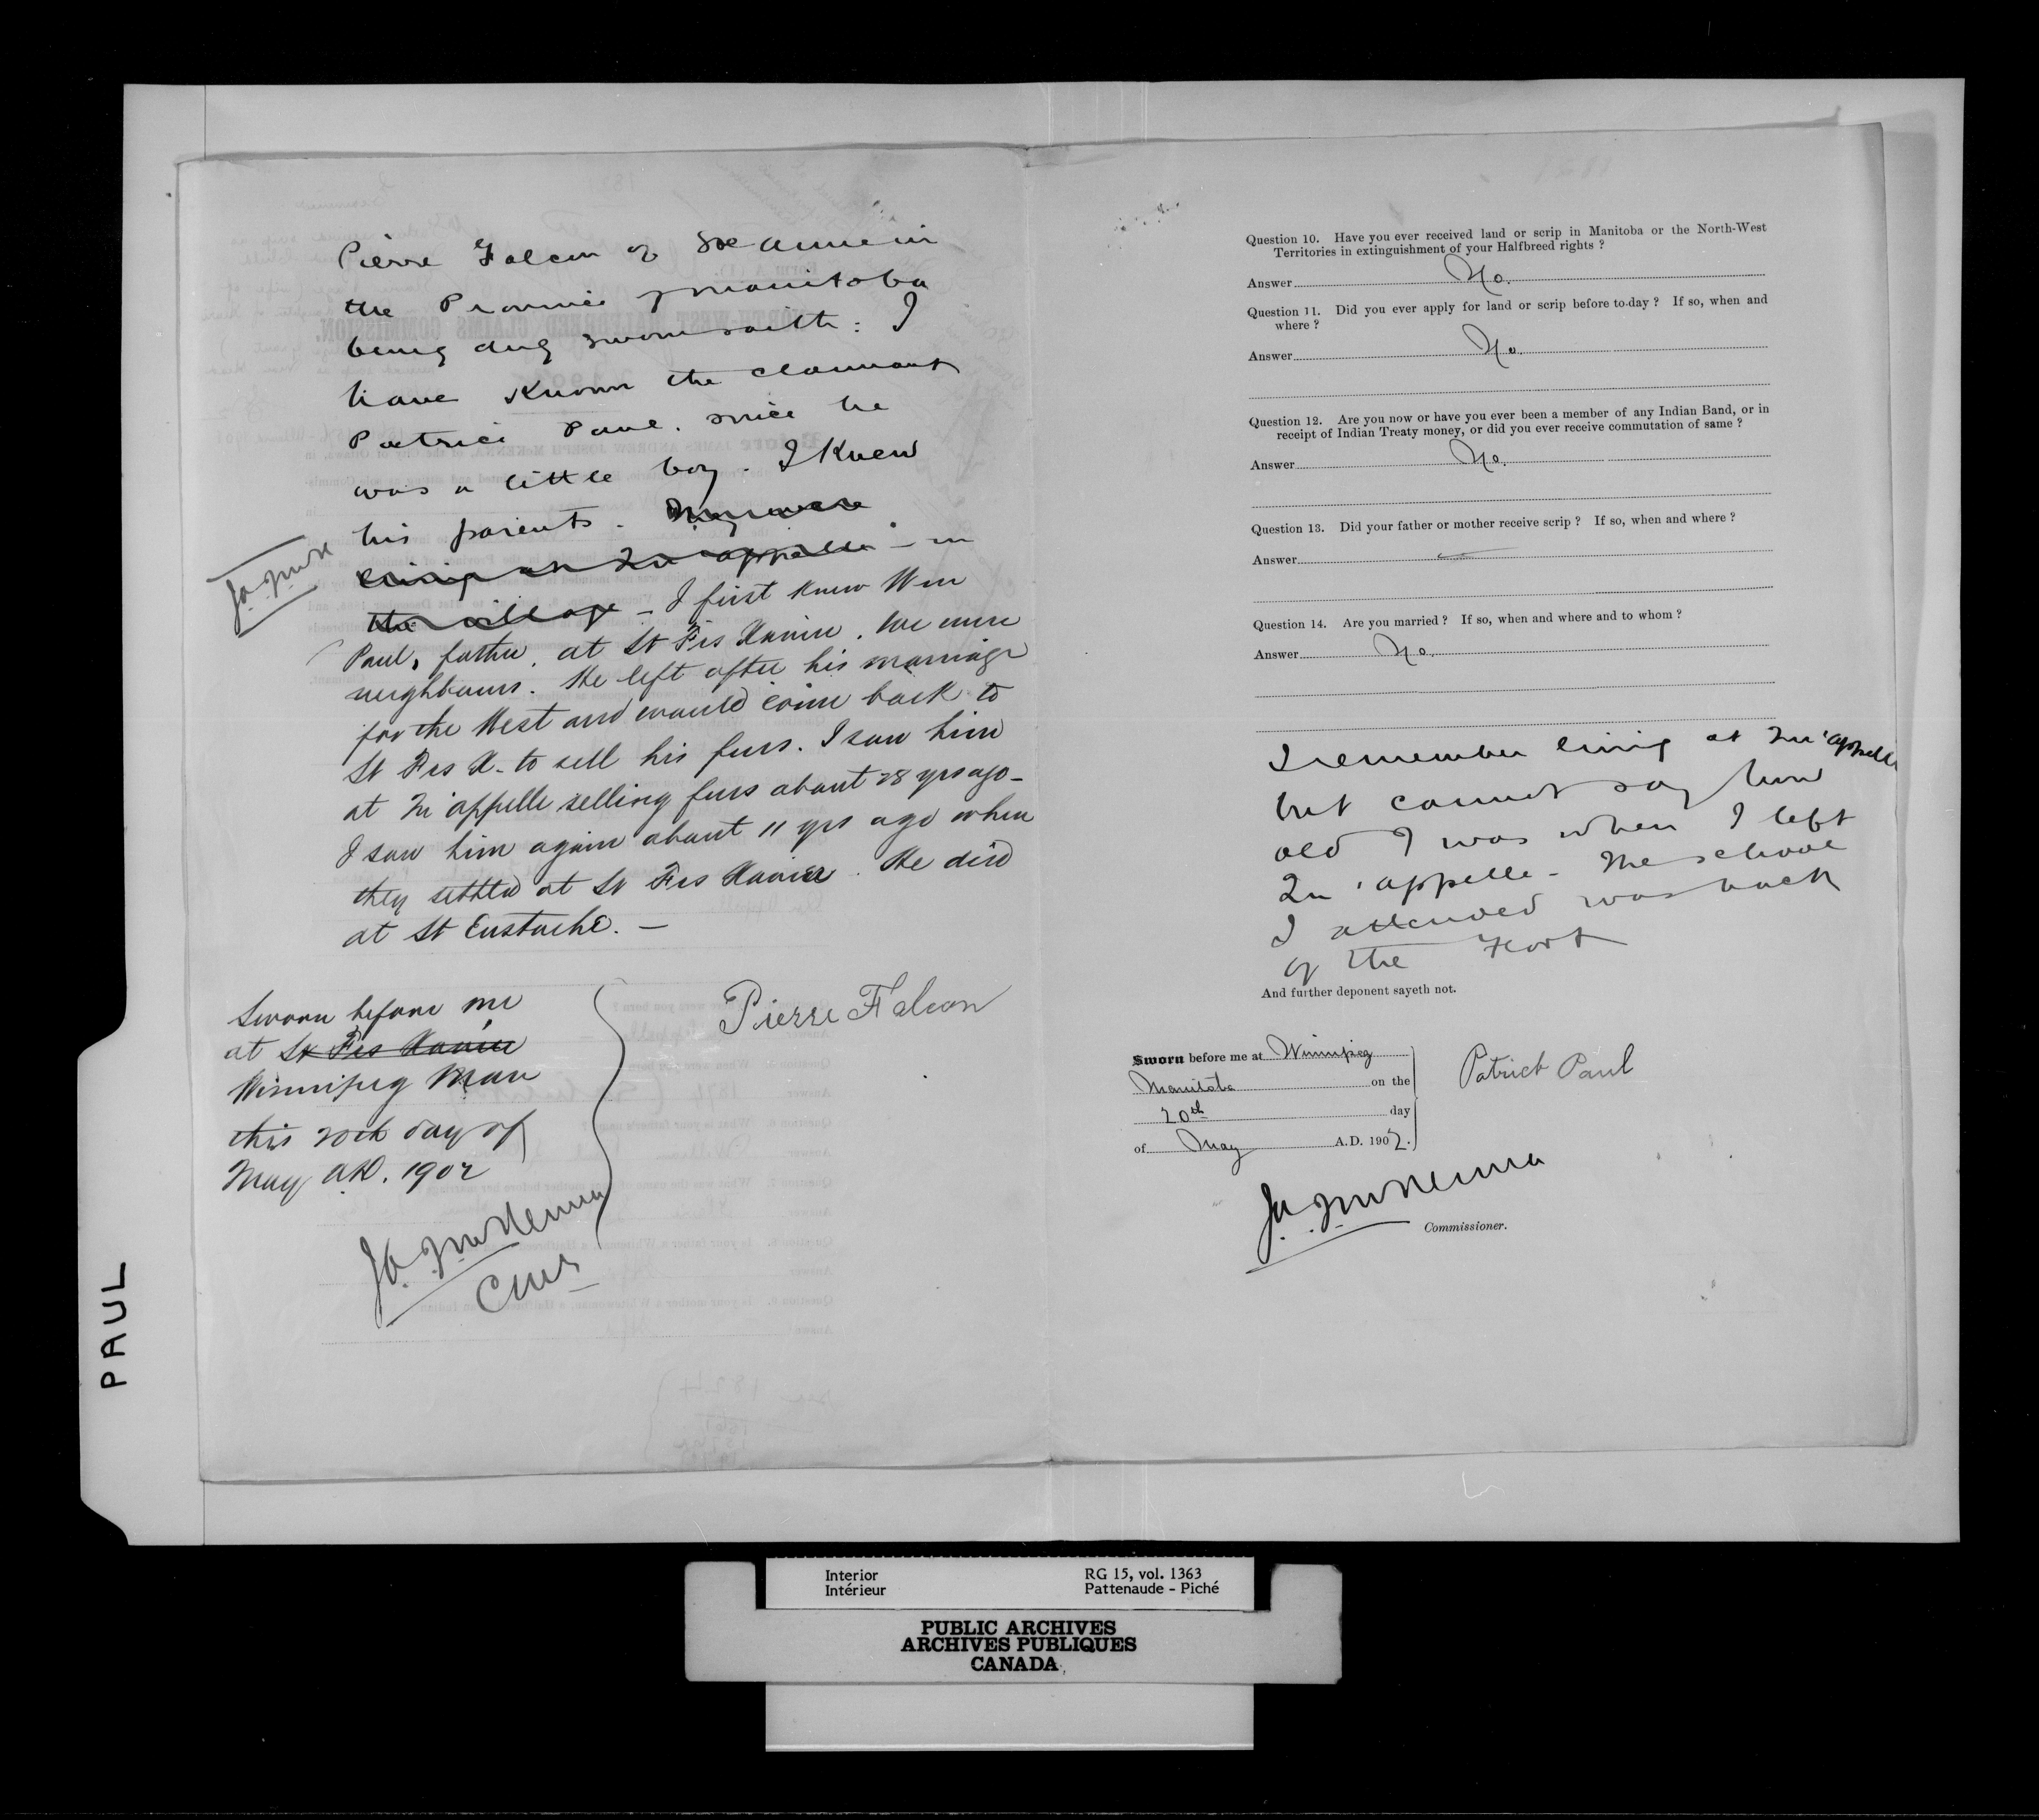 Pierre Falcon of Ste Anne in
the Province of Manitoba
being duly sworn saith: I
have known the claimant
Patrice Paul. since he
was a little boy. I knew
his parents. They were
living at Qu'appelle - in
the village - I first knew Wm
J.A. McK
Paul, father, at St Frs Xavier. We were
neighbours. He left after his marriage
for the West and would come back to
St Frs X. to sell his furs. I saw him
at Qu'appelle selling furs about 28 yrs ago -
I saw him again about 11 yrs ago when
they settled at St Frs Xavier. He died
at St Eustache. -
Sworn before me
at St Frs Xavier
Winnipeg Man
this 20th day of
May A.D. 1902
Pierre Falcon
J.A. McKenna
Cmr
Question 10. Have you ever received land or scrip in Manitoba or the North-West
Territories in extinguishment of your Halfbreed rights ?
Answer No.
Question 11. Did you ever apply for land or scrip before to-day ? If so, when and
where ?
Answer No.
Question 12. Are you now or have you ever been a member of any Indian Band, or in
receipt of Indian Treaty money, or did you ever receive commutation of same ?
Answer No.
Question 13. Did your father or mother receive scrip ? If so, when and where ?
Answer —
Question 14. Are you married ? If so, when and where and to whom ?
Answer No.
I remember living at Qu'appelle
but cannot say how
old I was when I left
Qu'appelle - The school
I attended was back
of the Fort
And further deponent sayeth not.
Sworn before me at Winnipeg
Manitoba on the
20th day
of May A.D. 1902.
Patrick Paul
J.A. McKenna
Commissioner.
PAUL
Interior
Intérieur
RG 15, vol. 1363
Pattenaude - Piché
PUBLIC ARCHIVES
ARCHIVES PUBLIQUES
CANADA